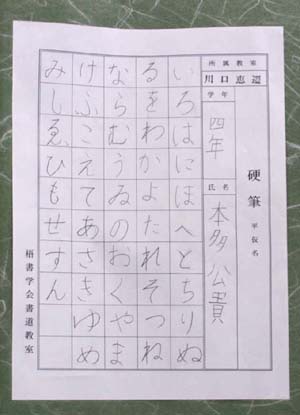 硬筆 平仮名
所属教室
川口
学年
四年
氏名
本多公貴
いろはにほへとちりぬ
るをわかよたれそつね
ならむうゐのおくやま
けふこえてあさきゆめ
みしゑひもせすん
梧書学会書道教室